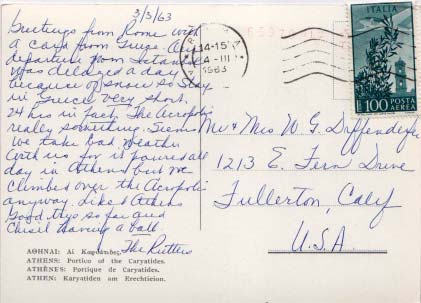 3/3/63
Greetings from Rome with
a card from Greece. Our
departure from Istanbul
was delayed a day
because of snow so stay
in Greece very short.
24 hrs in fact. The Acropolis
really something. Seems
we take bad weather
with us for it poured all
day in Athens but we
climbed over the Acropolis
anyway. Liked Athens
Good trip so far and
Chisil having a ball.
The Rutters
ΑΘΗΝΑΙ: Αἱ Καρυάτιδες.
ATHENS: Portico of the Caryatides.
ATHÈNES: Portique de Caryatides.
ATHEN: Karyatiden am Erechteion.
14-15
4-III
1963
ITALIA
L. 100 POSTA
AEREA
Mr & Mrs W G Diffenderfer
1213 E. Fern Drive
Fullerton, Calif
U.S.A.